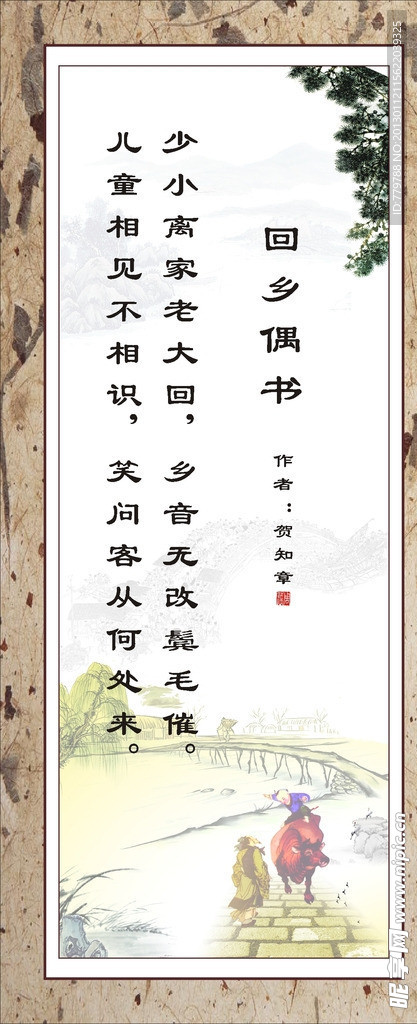 回乡偶书
作者：贺知章
少小离家老大回，乡音无改鬓毛催。
儿童相见不相识，笑问客从何处来。
ID:779788 NO:20130112115622039325
昵享网 www.nipic.cn